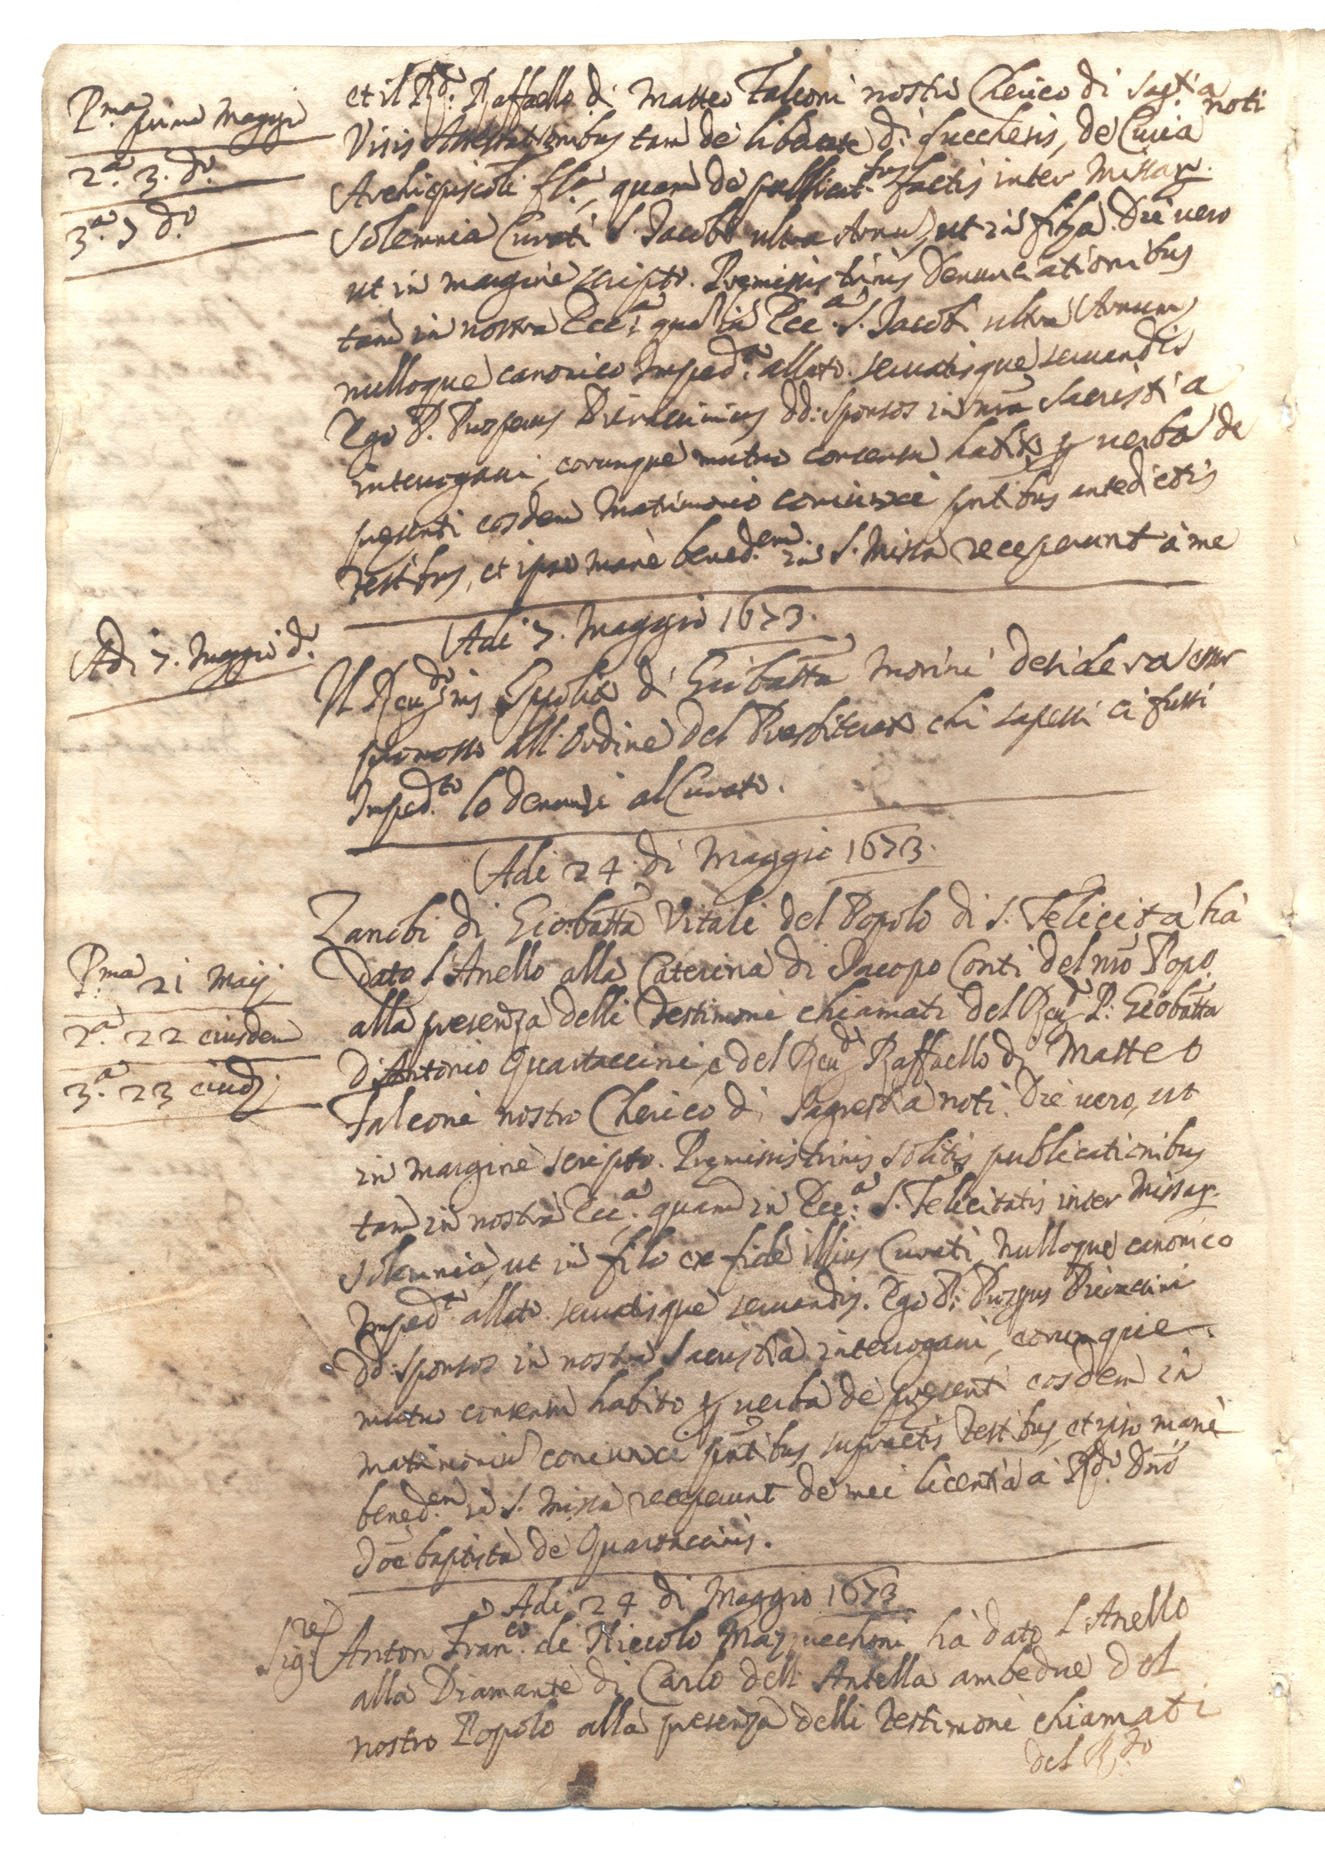 P.ma primo Maggio
2.a 3. d.o
3.a 7 d.o
et il R.do Raffaello di Matteo Falconi nostro Cherico di Sag.tia noti
Visis Attestationibus tam de libertate di Succheris, de Curia
Archiepiscoli fl.a, quam de pubblicat.bus factis inter Missar.
Solemnia Curati S. Jacobi ultra Arnu, ut in filza. Die vero
ut in margine scripto. Premissis trinis denunciationibus
tam in nostra Eccl.a qua in Ecc.a S. Jacobi ultra Arnum
nulloque canonico Imped.o allato servatisque servandis
Ego P. Prosperus Pieraccinius dd: sponsos in nra Sacristia
interrogavi, eorumque mutuo consensu habito p verba de
presenti eosdem Matrimonio coniunxi pntibus antedictis
testibus, et ipso mane bened.em in S. Missa receperunt à me
Adi 7. Maggio 1673.
Adi 7. Maggio d.o
Il Reu.do ms Ippolito di Giobatta Morini desidera esser
promosso all'Ordine del Presbiterato chi sapessi ci fussi
Imped.to lo denunzi al Curato.
Adi 24 di Maggio 1673.
P.ma 21 Maij
2.a 22 eiusdem
3.a 23 eiusd:
Zanobi di Gio:batta Vitali del Popolo di S. Felicita hà
dato l'Anello alla Caterina di Jacopo Conti del nro Popo.
alla presenza delli Testimoni chiamati del Reu.do P. Giobatta
d'Antonio Quartaccini, e del Reu.do Raffaello di Matteo
Falconi nostro Cherico di Sagrestia noti. Die vero, ut
in margine scripto. Premissis trinis solitis publicationibus
tam in nostra Ecc.a quam in Ecc.a S. Felicitatis inter Missar.
Solemnia, ut in filo ex fide illius Curati, nulloque canonico
Imped.o allato servatisque servandis. Ego P. Prosprus Pieraccini
dd: sponsos in nostra Sacristia interrogavi, eorumque
mutuo consensu habito p verba de presenti eosdem in
matrimoniu coniunxi pntibus supractis Testibus, et ipso mane
bened.em in S. Missa receperunt de mei licentia à R.do Dno
Joe baptista de Quartaccinis.
Adi 24 di Maggio 1673
Sig.re Anton Fran.co di Niccolo Mazzucchoni hà dato l'Anello
alla Diamante di Carlo dell' Antella ambedue del
nostro Popolo alla presenza delli Testimoni chiamati
del R.do